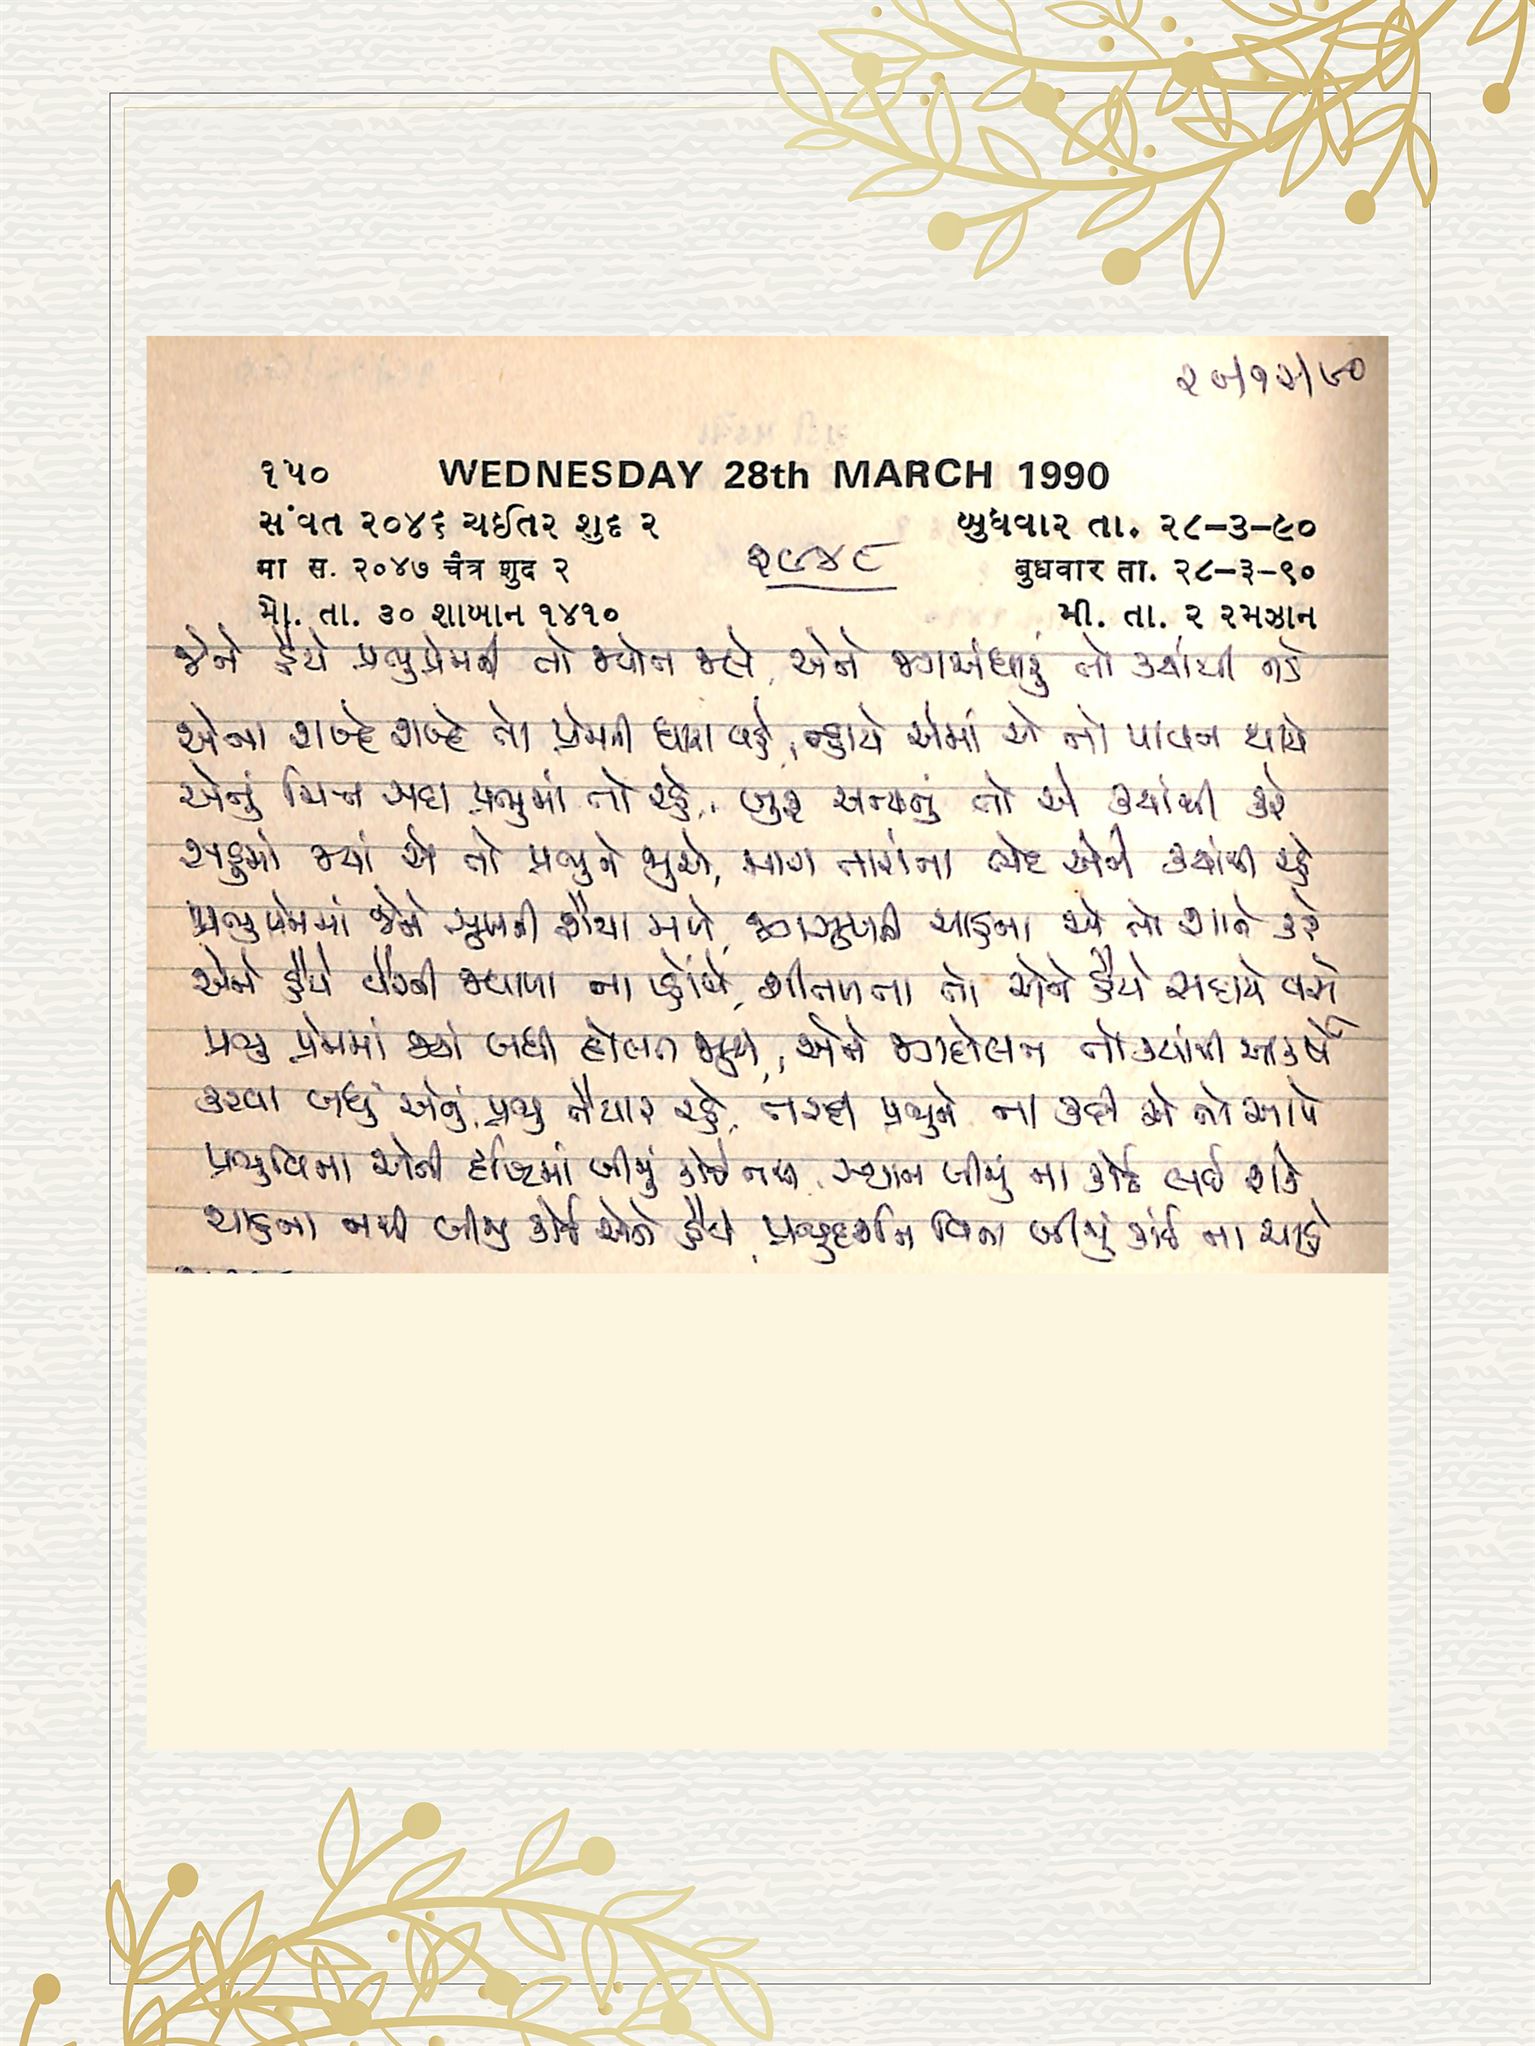 ૨૦/૧૨/૯૦
૧૫૦ WEDNESDAY 28th MARCH 1990
સંવત ૨૦૪૬ ચઈતર શુદ ૨ બુધવાર તા. ૨૮-૩-૯૦
૨૯૪૯
मा स. २०४७ चैत्र शुद २ बुधवार ता. २८-३-९०
મો. તા. ૩૦ શાબાન ૧૪૧૦ મી. તા. ૨ રમઝાન
જેને હૈયે પ્રભુપ્રેમની તો જ્યોત જલે, એને જગઅંધારું તો ક્યાંથી નડે
એના શબ્દે શબ્દે તો પ્રેમની ધારા વહે, ન્હાયે એમાં એ તો પાવન થાયે
એનું ચિત્ત સદા પ્રભુમાં તો રહે, બુરૂં અન્યનું તો એ ક્યાંથી કરે
સહુમાં જ્યાં એ તો પ્રભુને જુએ, મારા તારાના ભેદ એને ક્યાંથી રહે
પ્રભુ પ્રેમમાં જેને સુખની શૈયા મળે, જગસુખની ચાહના એ તો શાને કરે
એને હૈયે વૈરની જ્વાળા ના પ્હોંચે, શીતળતા તો એને હૈયે સદાયે વસે
પ્રભુ પ્રેમમાં જ્યાં બધી દોલત, એને જગદોલત તો ક્યાંથી આકર્ષે
કરવા બધું એનું પ્રભુ તૈયાર રહે, તરછોડી પ્રભુને ના કદી એ તો આપે
પ્રભુવિના એની દૃષ્ટિમાં બીજું કોઈ નથી, સ્થાન બીજું ના કોઈ લઈ શકે
ચાહના નથી બીજી કોઈ એને હૈયે, પ્રભુદર્શન વિના બીજું કાંઈ ના ચાહે